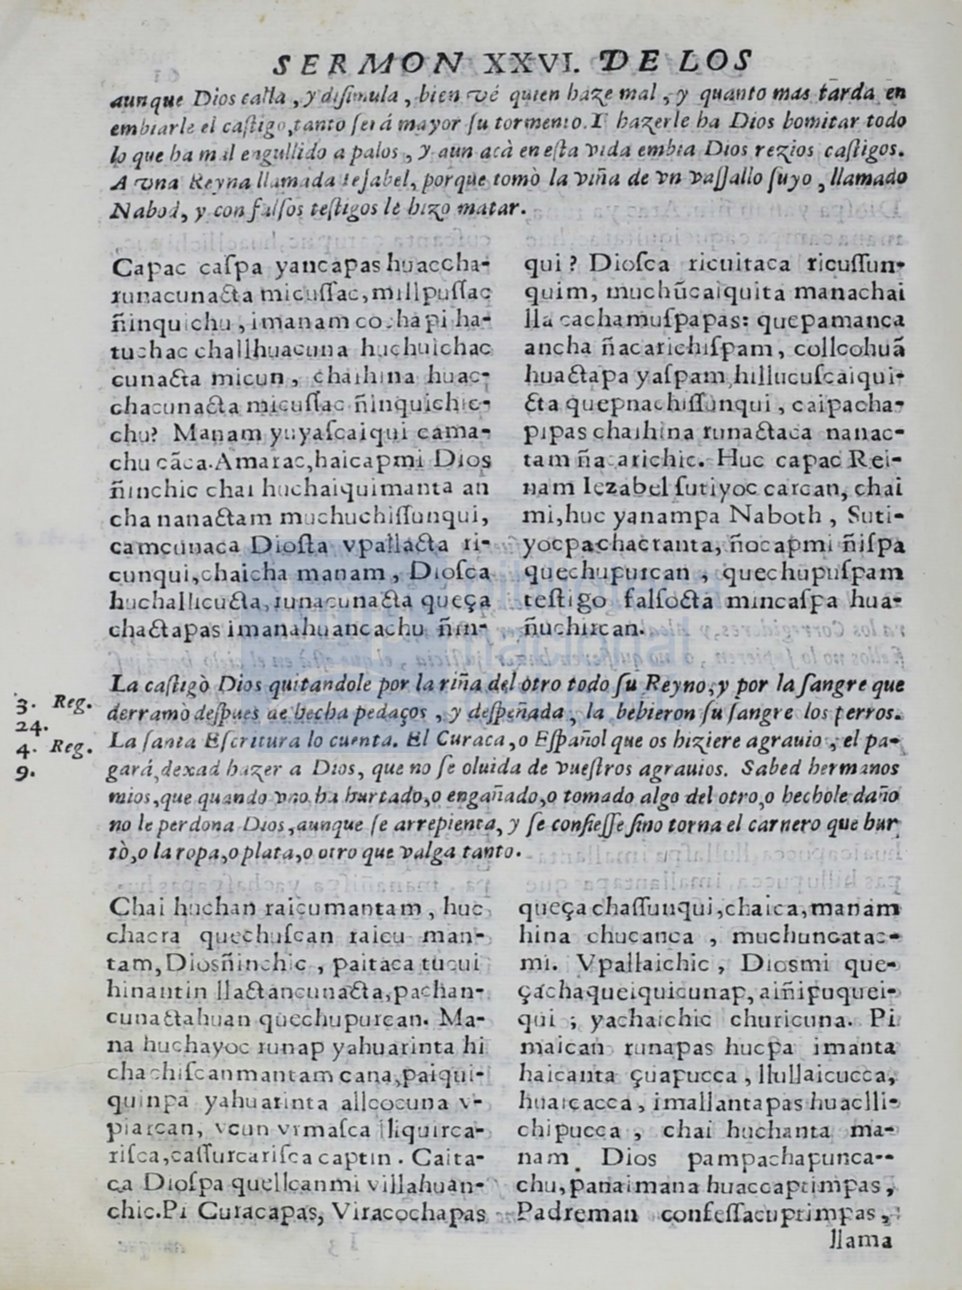 SERMON XXVI. DE LOS
aunque Dios calla, y disimula, bien vé quien haze mal, y quanto mas tarda en
embiarle el castigo, tanto será mayor su tormento. Y hazerle ha Dios bomitar todo
lo que ha mal engullido a palos, y aun acà en esta vida embia Dios rezios castigos.
A vna Reyna llamada Iejabel, porque tomò la viña de vn vassallo suyo, llamado
Nabod, y con falsos testigos le hizo matar.
Capac caſpa yancapas huaccha-
runacunacta micuſſac, millpuſſac
ñinquichu, imanam cochapi ha-
tuchac challhuacuna huchuichac
cunacta micun, chaihina huac-
chacunacta micuſſac ñinquichic-
chu? Manam yuyaſcaiqui cama-
chu cãca. Amarac, haicapmi Dios
ñinchic chai huchaiquimanta an
cha nanactam muchuchiſſunqui,
camcunaca Dioſta vpallacta ri-
cunqui, chaicha manam, Dioſca
huchallicucta, runacunacta queça
chactapas imanahuancachu ñin-
qui? Dioſca ricuitaca ricuſſun-
quim, muchũcaiquita manachai
lla cachamuſpapas: quepamanca
ancha ñacarichiſpam, collcohuã
huactapa yaſpam, hillucuſcaiqui-
cta quepnachiſſunqui, caipacha-
pipas chaihina runactaca nanac-
tam ñacarichic. Huc capac Rei-
nam Iezabel ſutiyoc carcan, chai
mi, huc yanampa Naboth, Suti-
yocpa chactanta, ñocapmi ñiſpa
quechupurcan, quechupuſpam
teſtigo falſocta mincaſpa hua-
ñuchircan.
La castigò Dios quitandole por la viña del otro todo su Reyno, y por la sangre que
3. Reg. derramò despues de hecha pedaços, y despeñada, la bebieron su sangre los perros.
24.
4. Reg. La santa Escritura lo cuenta. El Curaca, o Español que os hiziere agrauio, el pa-
9. gará, dexad hazer a Dios, que no se oluida de vuestros agrauios. Sabed hermanos
mios, que quando vno ha hurtado, o engañado, o tomado algo del otro, o hechole daño
no le perdona Dios, aunque se arrepienta, y se confiesse sino torna el carnero que hur
tò, o la ropa, o plata, o otro que valga tanto.
Chai huchan raicumantam, huc
chacra quechuſcan raicu man-
tam, Diosñinchic, paitaca tucui
hinantin llactancunacta, pachan-
cunactahuan quechupurcan. Ma-
na huchayoc runap yahuarinta hi
chachiſcanmantam cana, paiqui-
quinpa yahuarinta allcocuna v-
piarcan, vcun vrmaſca lliquirca-
riſca, caſſurcariſca captin. Caita-
ca Dioſpa quellcanmi villahuan-
chic. Pi Curacapas, Viracochapas
queça chaſſunqui, chaica, manam
hina chucanca, muchuncatac-
mi. Vpallaichic, Diosmi que-
çachaqueiquicunap, aiñipuquei-
qui; yachaichic churicuna. Pi
maican runapas hucpa imanta
haicanta çuapucca, llullaicucca,
huatcacca, imallantapas huaclli-
chipucca, chai huchanta ma-
nam Dios pampachapunca-
chu, panaimana huaccaptimpas,
Padreman confeſſacuptimpas,
llama